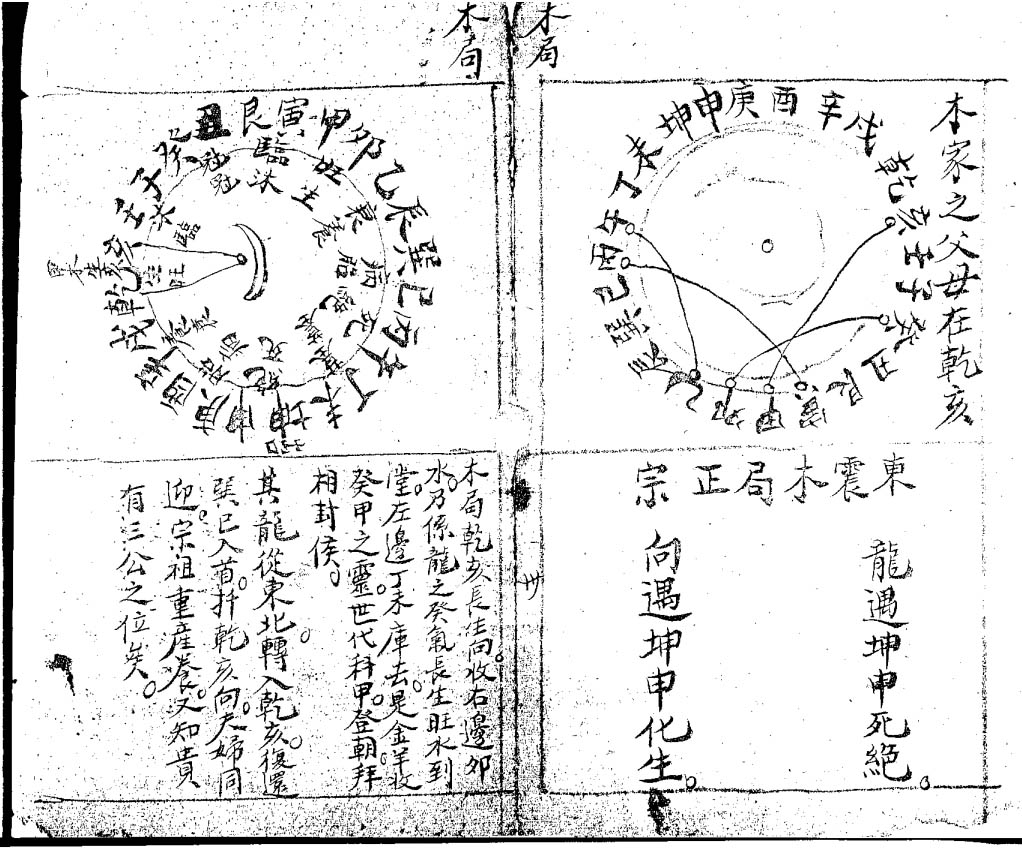 木局
木家之父母在乾亥
坤申庚酉辛戌乾亥壬子癸丑艮寅甲卯乙辰巽巳丙午丁未
東震木局正宗
龍遇坤申死絕。
向遇坤申化生。
木局
丑艮寅甲卯乙辰巽巳丙午丁未坤申庚酉辛戌乾亥壬子癸
木局乾亥長生向。收右邊卯
水。乃係龍之癸氣長生旺水到
堂。左邊丁未庫去。是金羊收
癸甲之靈。世代科甲。登朝拜
相封侯。
其龍從東北轉入乾亥。復還
巽巳入首。扦乾亥向。夫婦同
迎。宗祖重產養。又知貴
有三公之位矣。